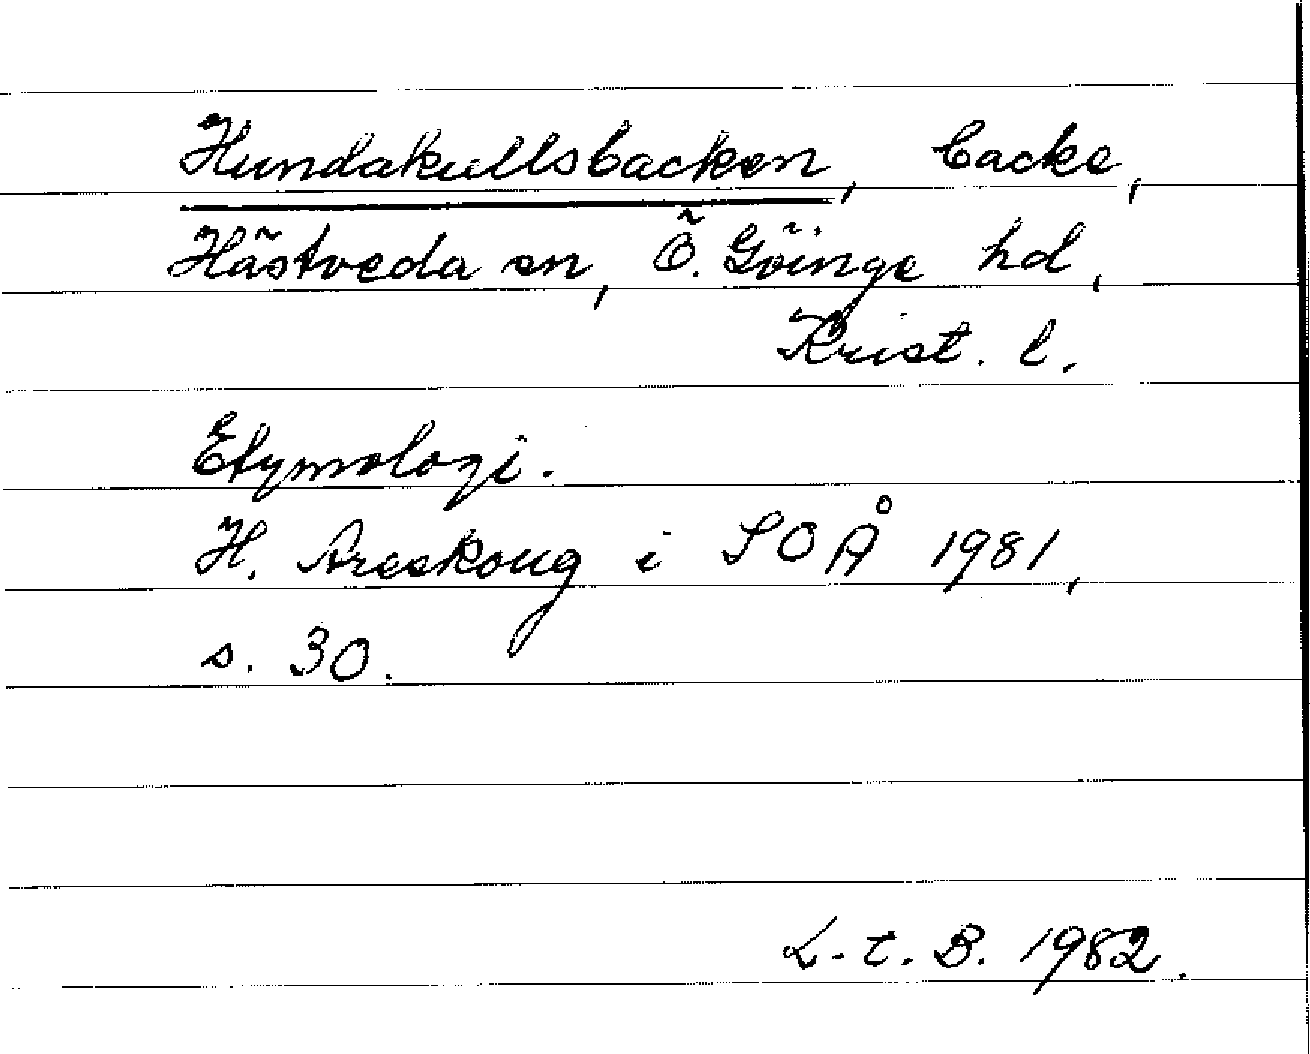 Hundakullsbacken, backe,
Hästveda sn, Ö. Göinge hd,
Krist. l.
Etymologi.
H. Areskoug i SOÅ 1981,
s. 30.
L. t. B. 1982.